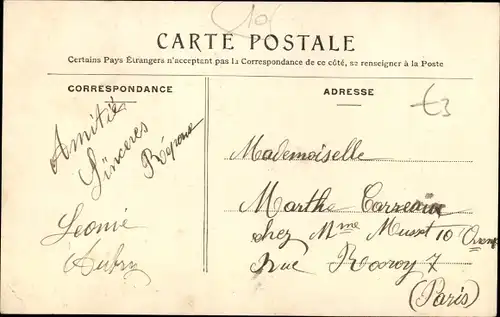 10
CARTE POSTALE
Certains Pays Étrangers n'acceptent pas la Correspondance de ce côté, se renseigner à la Poste
CORRESPONDANCE
ADRESSE
Amitié
Sincères
Réponse
Leonie
Aubry
€3
Mademoiselle
Marthe Carreaux
chez Mme Musset 10
Rue Rocroy 7
(Paris)